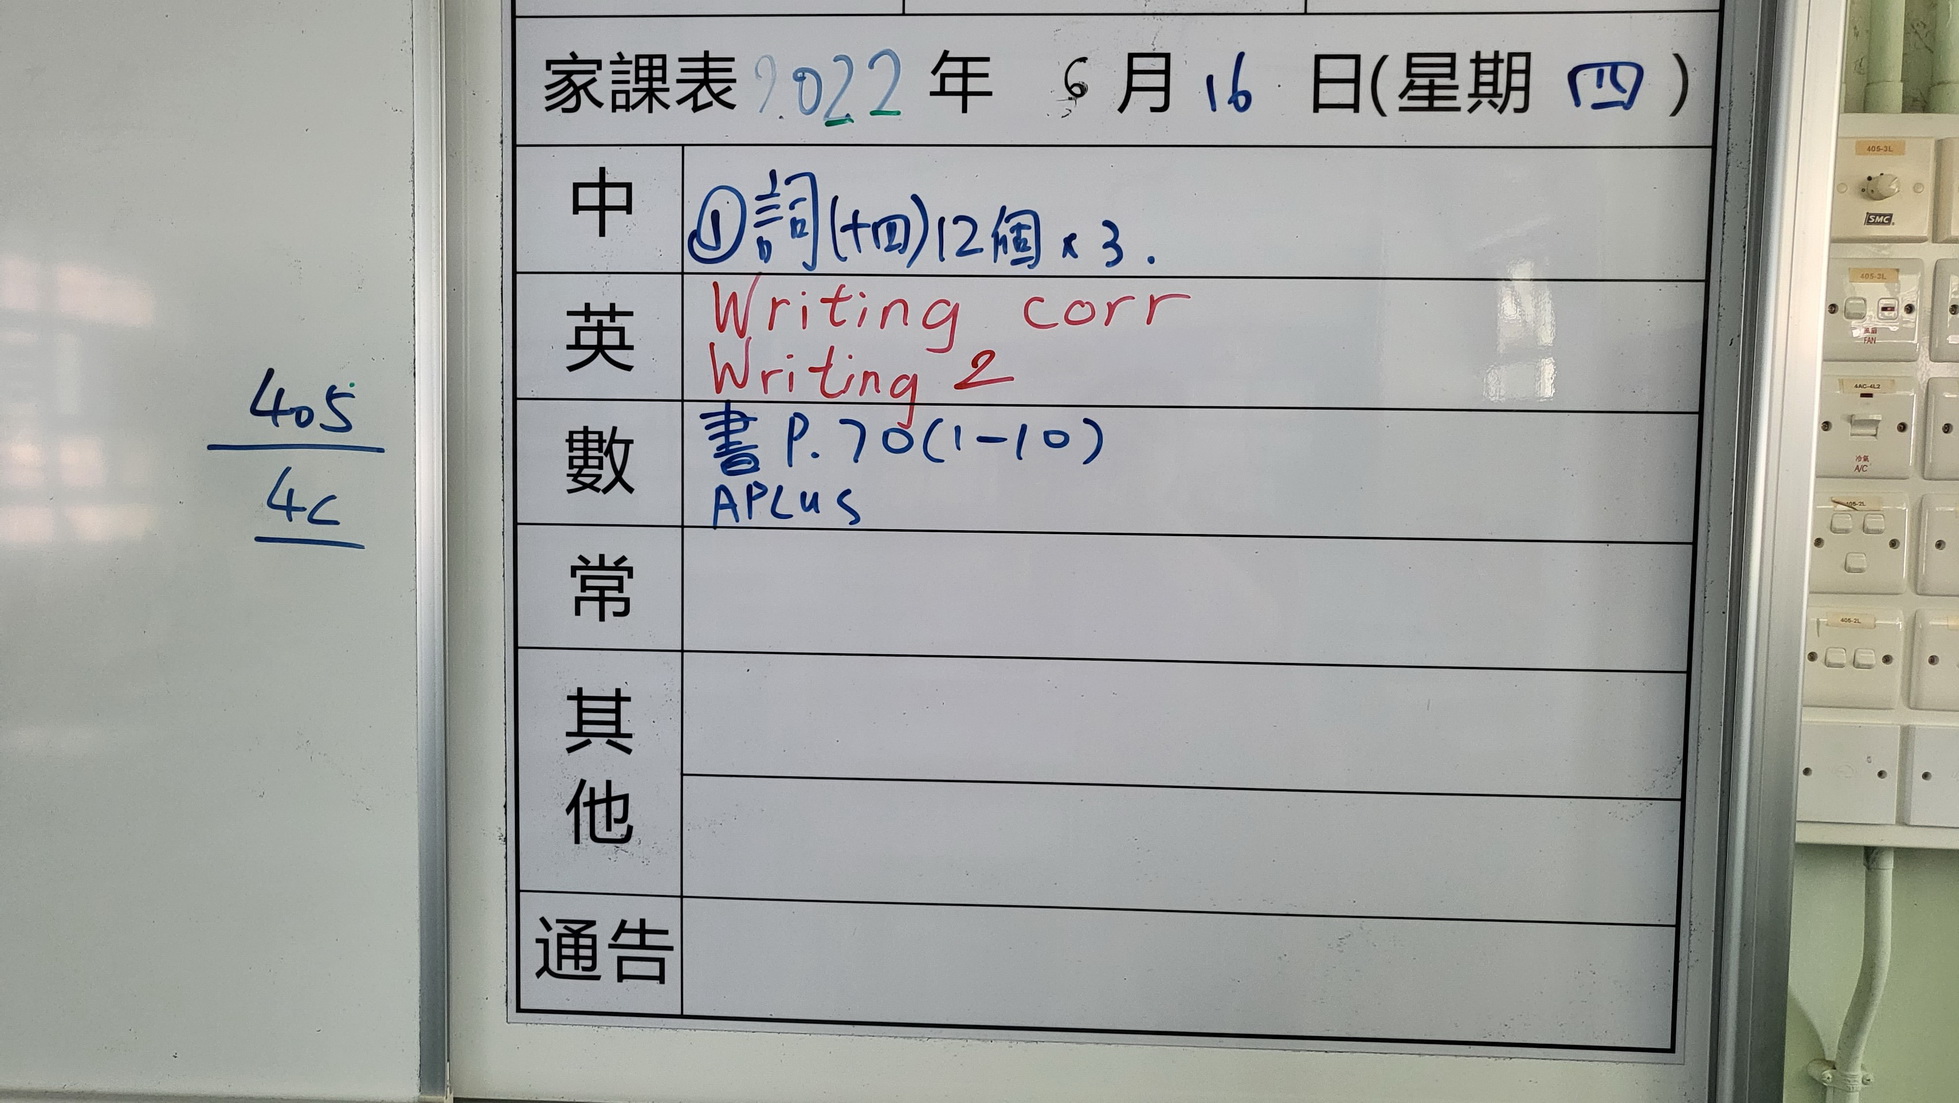 家課表 2022 年 6 月 16 日(星期 四)
中
①詞(十四)12個 x 3.
英
Writing corr
Writing 2
數
書 P.70(1-10)
APLUS
常
其他
通告
405
4C
405-3L
SMC
405-3L
風扇
FAN
4AC-4L2
冷氣
A/C
405-2L
405-2L